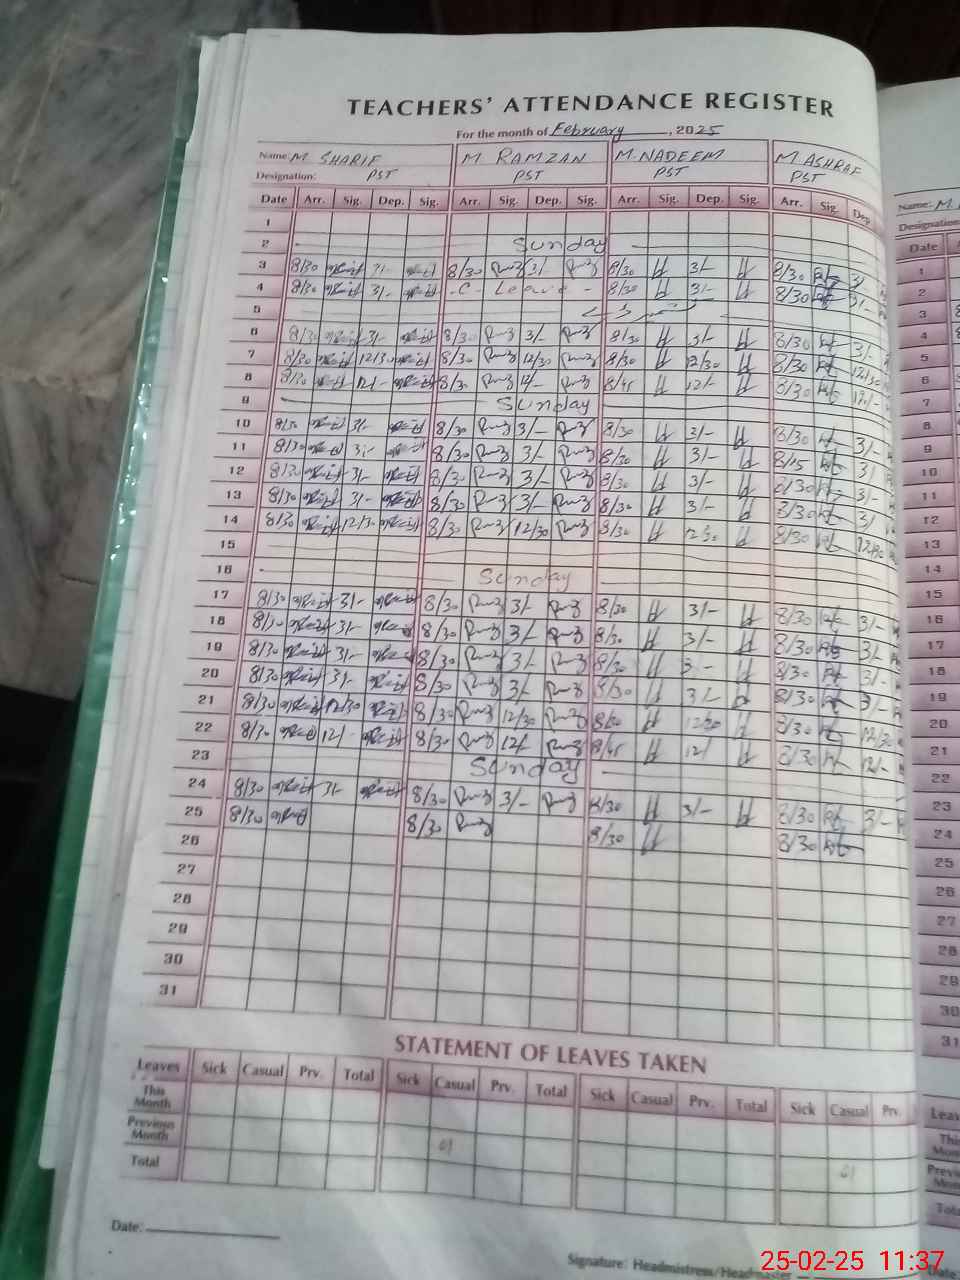 TEACHERS' ATTENDANCE REGISTER
For the month of February, 2025
Name: M. SHARIF M. RAMZAN M. NADEEM M. ASHRAF
Designation: PST PST PST PST
Date Arr. Sig. Dep. Sig. Arr. Sig. Dep. Sig. Arr. Sig. Dep. Sig. Arr. Sig. Dep
1
2 Sunday
3 8/30 3/- 8/30 3/- 8/30 3/- 8/30 3/
4 8/30 3/- C- Leave - 8/30 3/- 8/30 3/-
5
6 8/30 3/- 8/30 3/- 8/30 3/- 8/30 3/-
7 8/30 12/30 8/30 12/30 8/30 12/30 8/30 12/30
8 8/30 12/- 8/30 12/- 8/45 12/- 8/30 12/-
9 Sunday
10 8/30 3/- 8/30 3/- 8/30 3/- 8/30 3/-
11 8/30 3/- 8/30 3/- 8/30 3/- 3/
12 8/30 3/- 8/30 3/- 8/30 3/- 8/30 3/-
13 8/30 3/- 8/30 3/- 8/30 3/- 8/30 3/
14 8/30 12/30 8/30 12/30 8/30 12/30 8/30 12/30
15
16 Sunday
17 8/30 3/- 8/30 3/- 8/30 3/- 8/30 3/-
18 8/30 3/- 8/30 3/- 8/30 3/- 8/30 3/-
19 8/30 3/- 8/30 3/- 8/30 3/- 8/30 3/-
20 8/30 3/- 8/30 3/- 8/30 3/- 8/30 3/-
21 8/30 12/30 8/30 12/30 8/30 12/30 8/30 12/30
22 8/30 12/- 8/30 12/- 8/45 12/ 8/30 12/-
23 Sunday
24 8/30 3/- 8/30 3/- 8/30 3/- 8/30 3/-
25 8/30 8/30 8/30 8/30
26
27
28
29
30
31
STATEMENT OF LEAVES TAKEN
Leaves Sick Casual Prv. Total Sick Casual Prv. Total Sick Casual Prv. Total Sick Casual Prv.
This Month
Previous Month 01 01
Total
Date:
Signature: Headmistress/Headmaster
Name: M.
Designation
Date
1
2
3
4
5
6
7
8
9
10
11
12
13
14
15
16
17
18
19
20
21
22
23
24
25
26
27
28
29
30
31
25-02-25 11:37